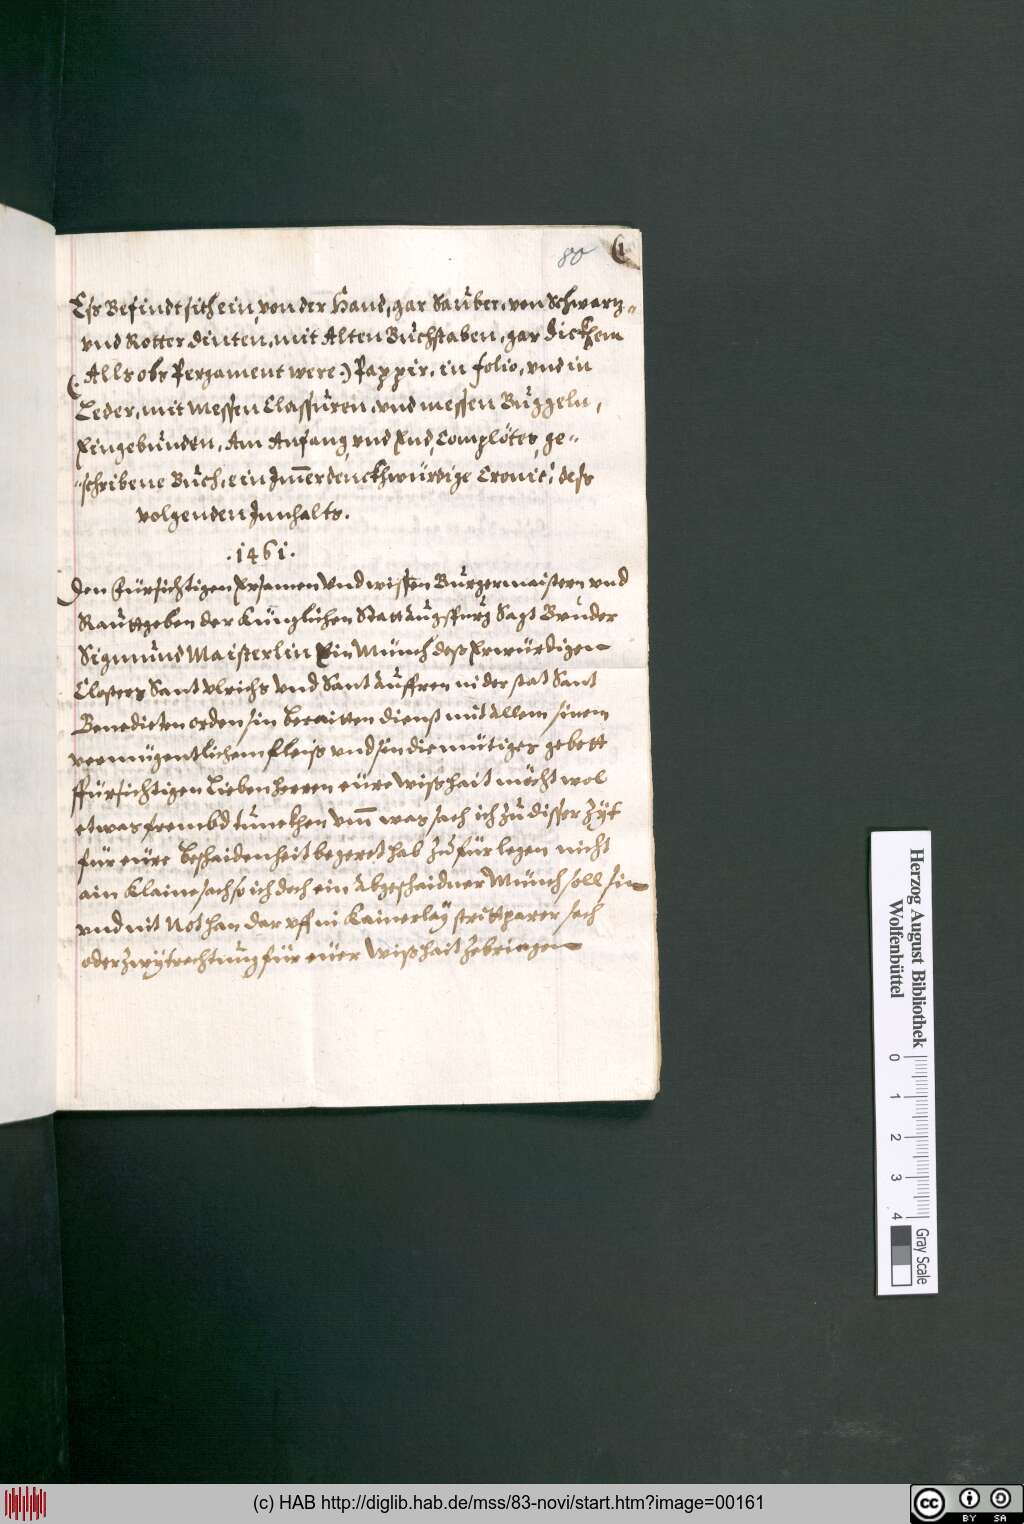 80 (1
Ess Befindt sich ein, von der Hand, gar Sauber, von Schwartz-
und Rotter dinten, mit Alten Buchstaben, gar dickhem
(: Alls obs Pergament were :) Pappir, in folio, und in
Leder, mit Messen Claussuren, und messen Buggeln,
Eingebunden, Am Anfang, und End, Complötes, ge-
-schribene Buch, ein Im̅erdenckhwürdige Cronic, dess
volgenden Innhalts.
.1461.
Den Fürsichtigen Ersamen Vnd wissen Burgermaistern vnd
Rauttgeben der Künglichen Statt Augspurg Sagt Bruder
Sigmund Maisterlin Ein Münch dess Erwürdigen
Closters Sant Vlrichs Vnd Sant Auffren in der stat Sant
Benedicten orden sin beraitten dienst mit allem sinem
vermügentlichem fleiss vnd sin diemütiges gebett
Fürsichtigen Lieben Herren eüre Wisshait möcht wol
etwas frembd tuncken Vm̅ was sach ich zu disser zyt
für eüre beschaidenheit begeret hab zu für legen nicht
ain klaine sach so ich doch ein Abgeschaidner Münch soll sin
vnd nit Not han dar uff in kainerlay strittparer sach
oder Zwytrechtung für eüer Wisshait zebringen
Herzog August Bibliothek
Wolfenbüttel
0 1 2 3 4
Gray Scale
(c) HAB http://diglib.hab.de/mss/83-novi/start.htm?image=00161
cc BY SA